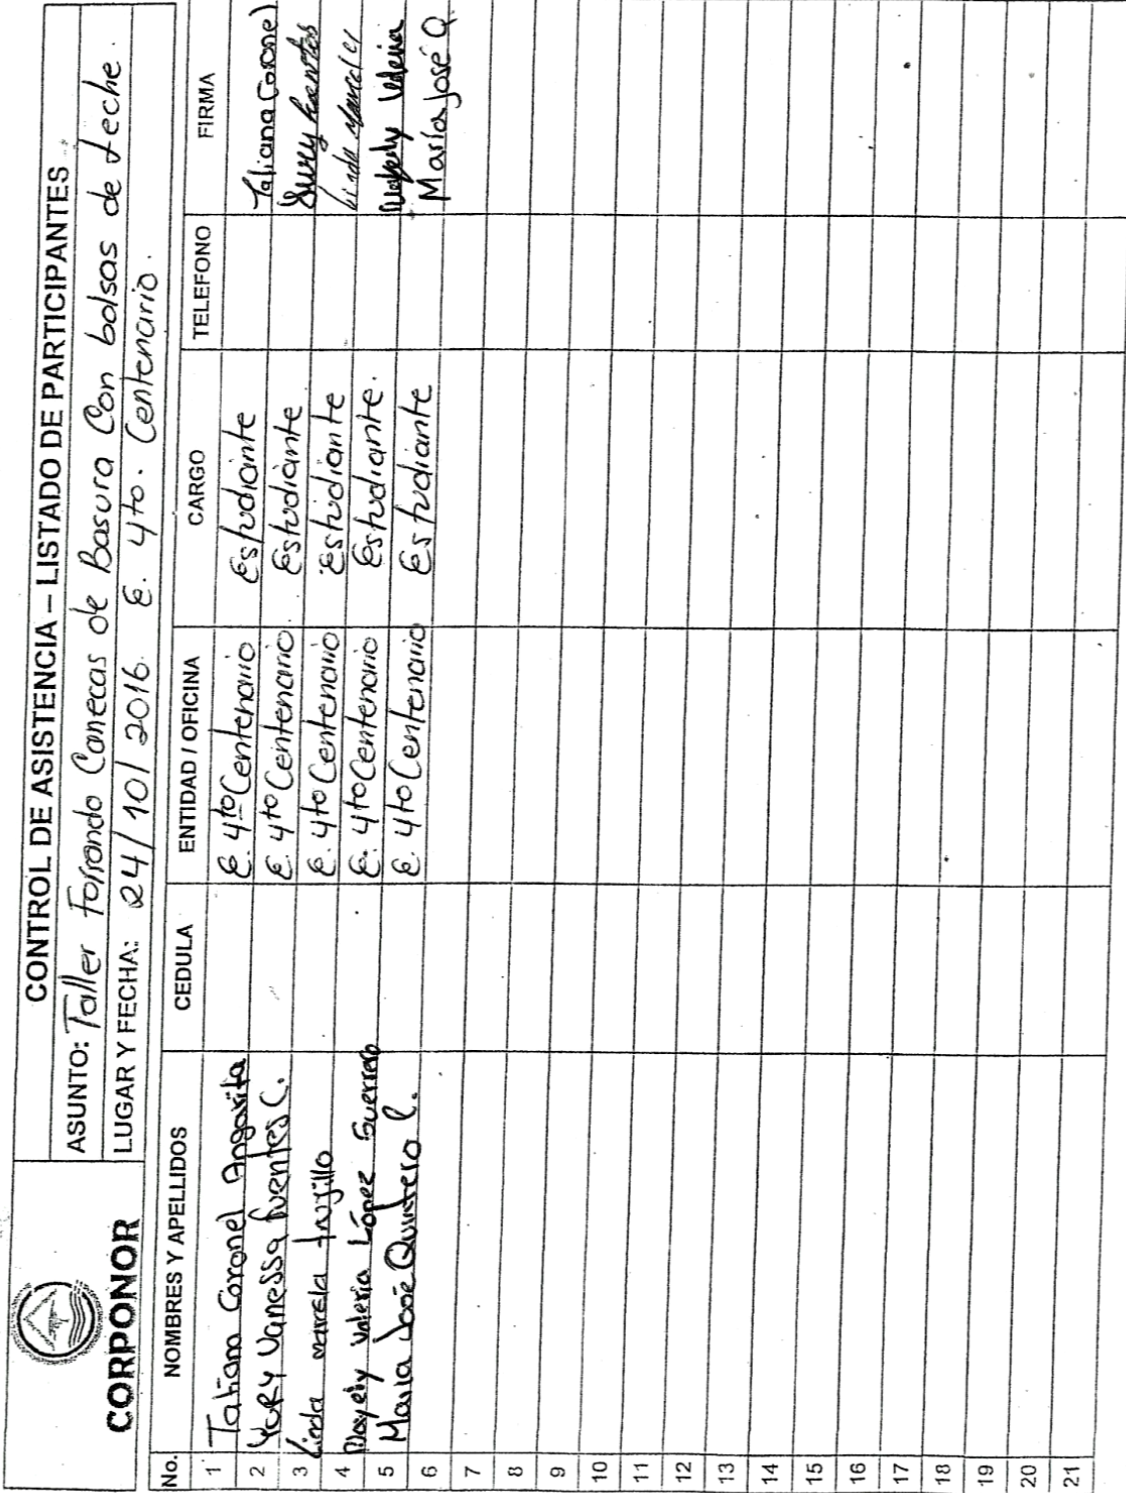 CORPONOR
CONTROL DE ASISTENCIA – LISTADO DE PARTICIPANTES
ASUNTO: Taller Forrando Canecas de Basura Con bolsas de Leche.
LUGAR Y FECHA: 24/10/2016. E. 4to. Centenario.
No. NOMBRES Y APELLIDOS CEDULA ENTIDAD / OFICINA CARGO TELEFONO FIRMA
1 Tatiana Coronel Angarita E. 4to Centenario Estudiante Tatiana Coronel
2 Yury Vanessa fuentes C. E. 4to Centenario. Estudiante Yury fuentes
3 Linda marcela trujillo E. 4to Centenario Estudiante Linda
4 Valeria López Guerrero E. 4to Centenario Estudiante. Valeria
5 María José Quintero E. 4to Centenario Estudiante María José Q
6
7
8
9
10
11
12
13
14
15
16
17
18
19
20
21